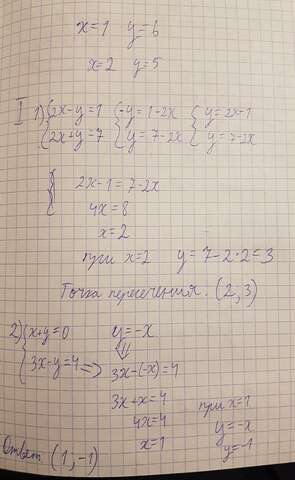 x=1 y=6
x=2 y=5
I 1) {2x-y=1 {-y=1-2x {y=2x-1
{2x+y=7 {y=7-2x {y=7-2x
{ 2x-1=7-2x
4x=8
x=2
при x=2 y=7-2·2=3
Точка пересечения. (2,3)
2) {x+y=0 y=-x
⇓
{3x-y=4 => 3x-(-x)=4
3x+x=4 при x=1
4x=4 y=-x
x=1 y=-1
Ответ (1,-1)